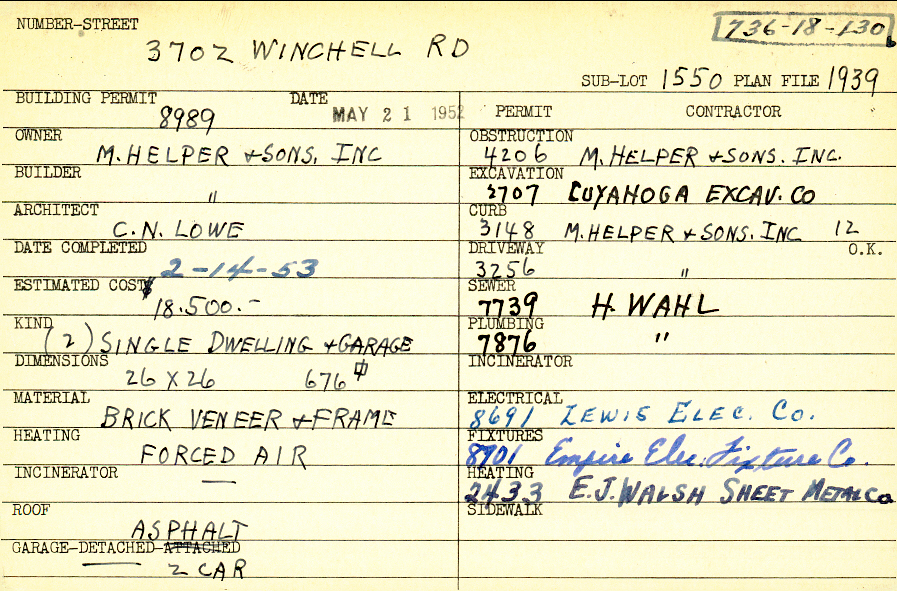 NUMBER-STREET
736-18-130
3702 WINCHELL RD
SUB-LOT 1550 PLAN FILE 1939
BUILDING PERMIT DATE
8989 MAY 21 1952
PERMIT CONTRACTOR
OWNER
M. HELPER + SONS, INC
BUILDER
"
ARCHITECT
C.N. LOWE
DATE COMPLETED
2-14-53
ESTIMATED COST $
18.500.-
KIND
(2) SINGLE DWELLING + GARAGE
DIMENSIONS
26 X 26 676
MATERIAL
BRICK VENEER + FRAME
HEATING
FORCED AIR
INCINERATOR
—
ROOF
ASPHALT
GARAGE-DETACHED-ATTACHED
2 CAR
OBSTRUCTION
4206 M. HELPER + SONS. INC.
EXCAVATION
2707 CUYAHOGA EXCAV. CO
CURB
3148 M. HELPER + SONS. INC 12
DRIVEWAY O.K.
3256 "
SEWER
7739 H. WAHL
PLUMBING
7876 "
INCINERATOR
ELECTRICAL
8691 LEWIS ELEC. CO.
FIXTURES
8701 Empire Elec. Fixture Co.
HEATING
2433 E.J. WALSH SHEET METAL CO
SIDEWALK